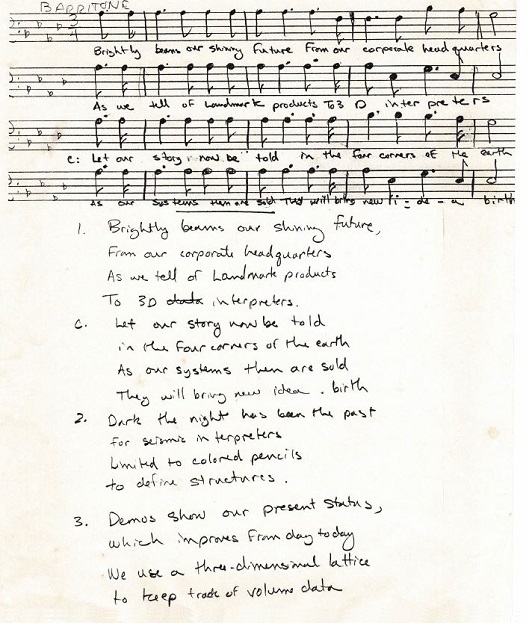 BARRITONE
3
4
Brightly beams our shining future From our corporate headquarters
As we tell of Landmark products To 3 D inter pre ters
c: Let our story now be told in the four corners of the earth
As our systems then are sold They will bring new i - de - a birth
1. Brightly beams our shining future,
From our corporate headquarters
As we tell of Landmark products
To 3D data interpreters.
c. Let our story now be told
in the four corners of the earth
As our systems then are sold
They will bring new idea . birth
2. Dark the night has been the past
for seismic in terpreters
Limited to colored pencils
to define structures .
3. Demos show our present status,
which improves From day today
We use a three-dimensional lattice
to keep track of volume data